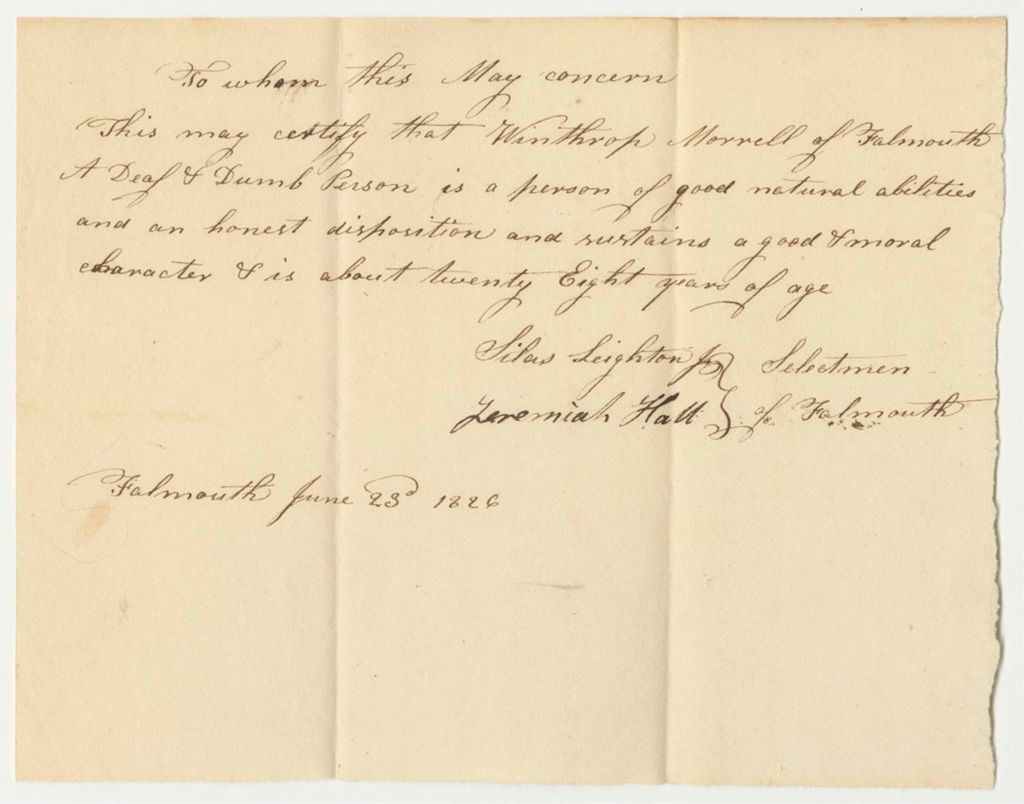 To whom this May concern
This may certify that Winthrop Morrell of Falmouth
A Deaf & Dumb Person is a person of good natural abilities
and an honest disposition and sustains a good & moral
character & is about twenty Eight years of age
Silas Leighton Jr } Selectmen
Jeremiah Hall } of Falmouth
Falmouth June 23d 1826